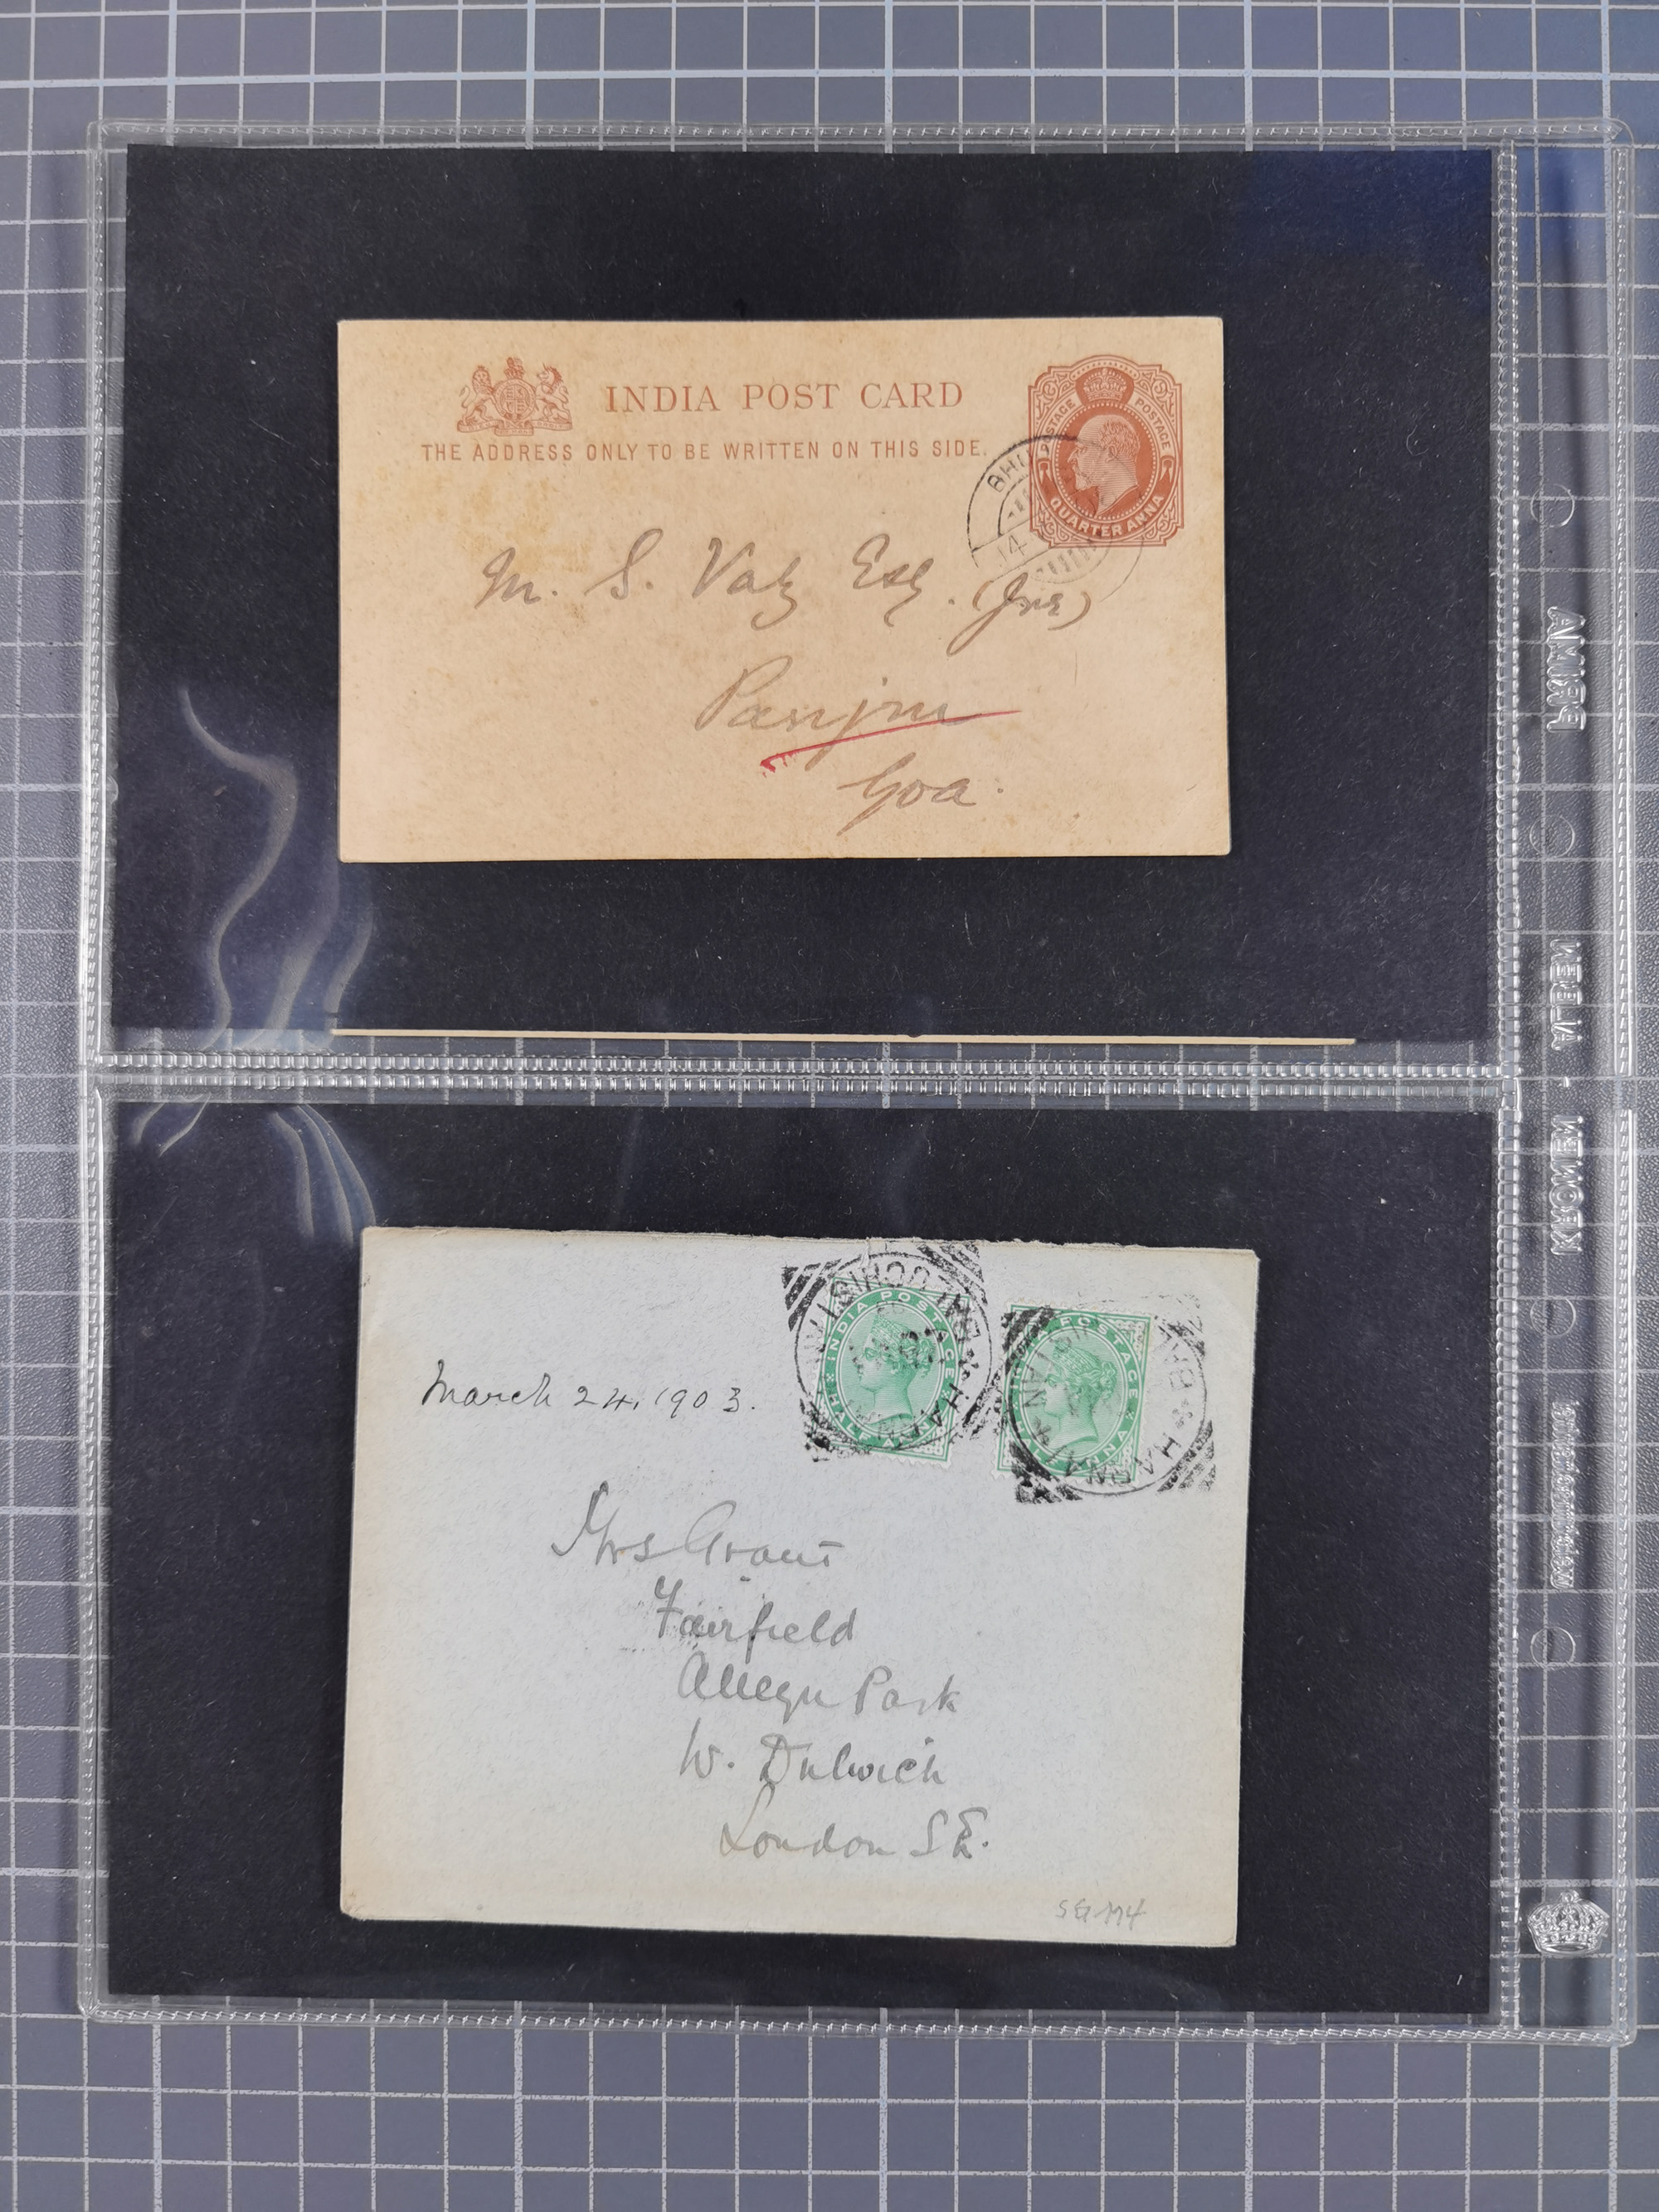 INDIA POST CARD
THE ADDRESS ONLY TO BE WRITTEN ON THIS SIDE.
POSTAGE POSTAGE
QUARTER ANNA
14
M. S. Vaz Esq. (Jnr)
Panjim
Goa.
INDIA POSTAGE
HALF ANNA
POSTAGE
HALF ANNA
March 24, 1903.
Mrs Grant
Fairfield
Alleyn Park
W. Dulwich
London S E.
PRIMA